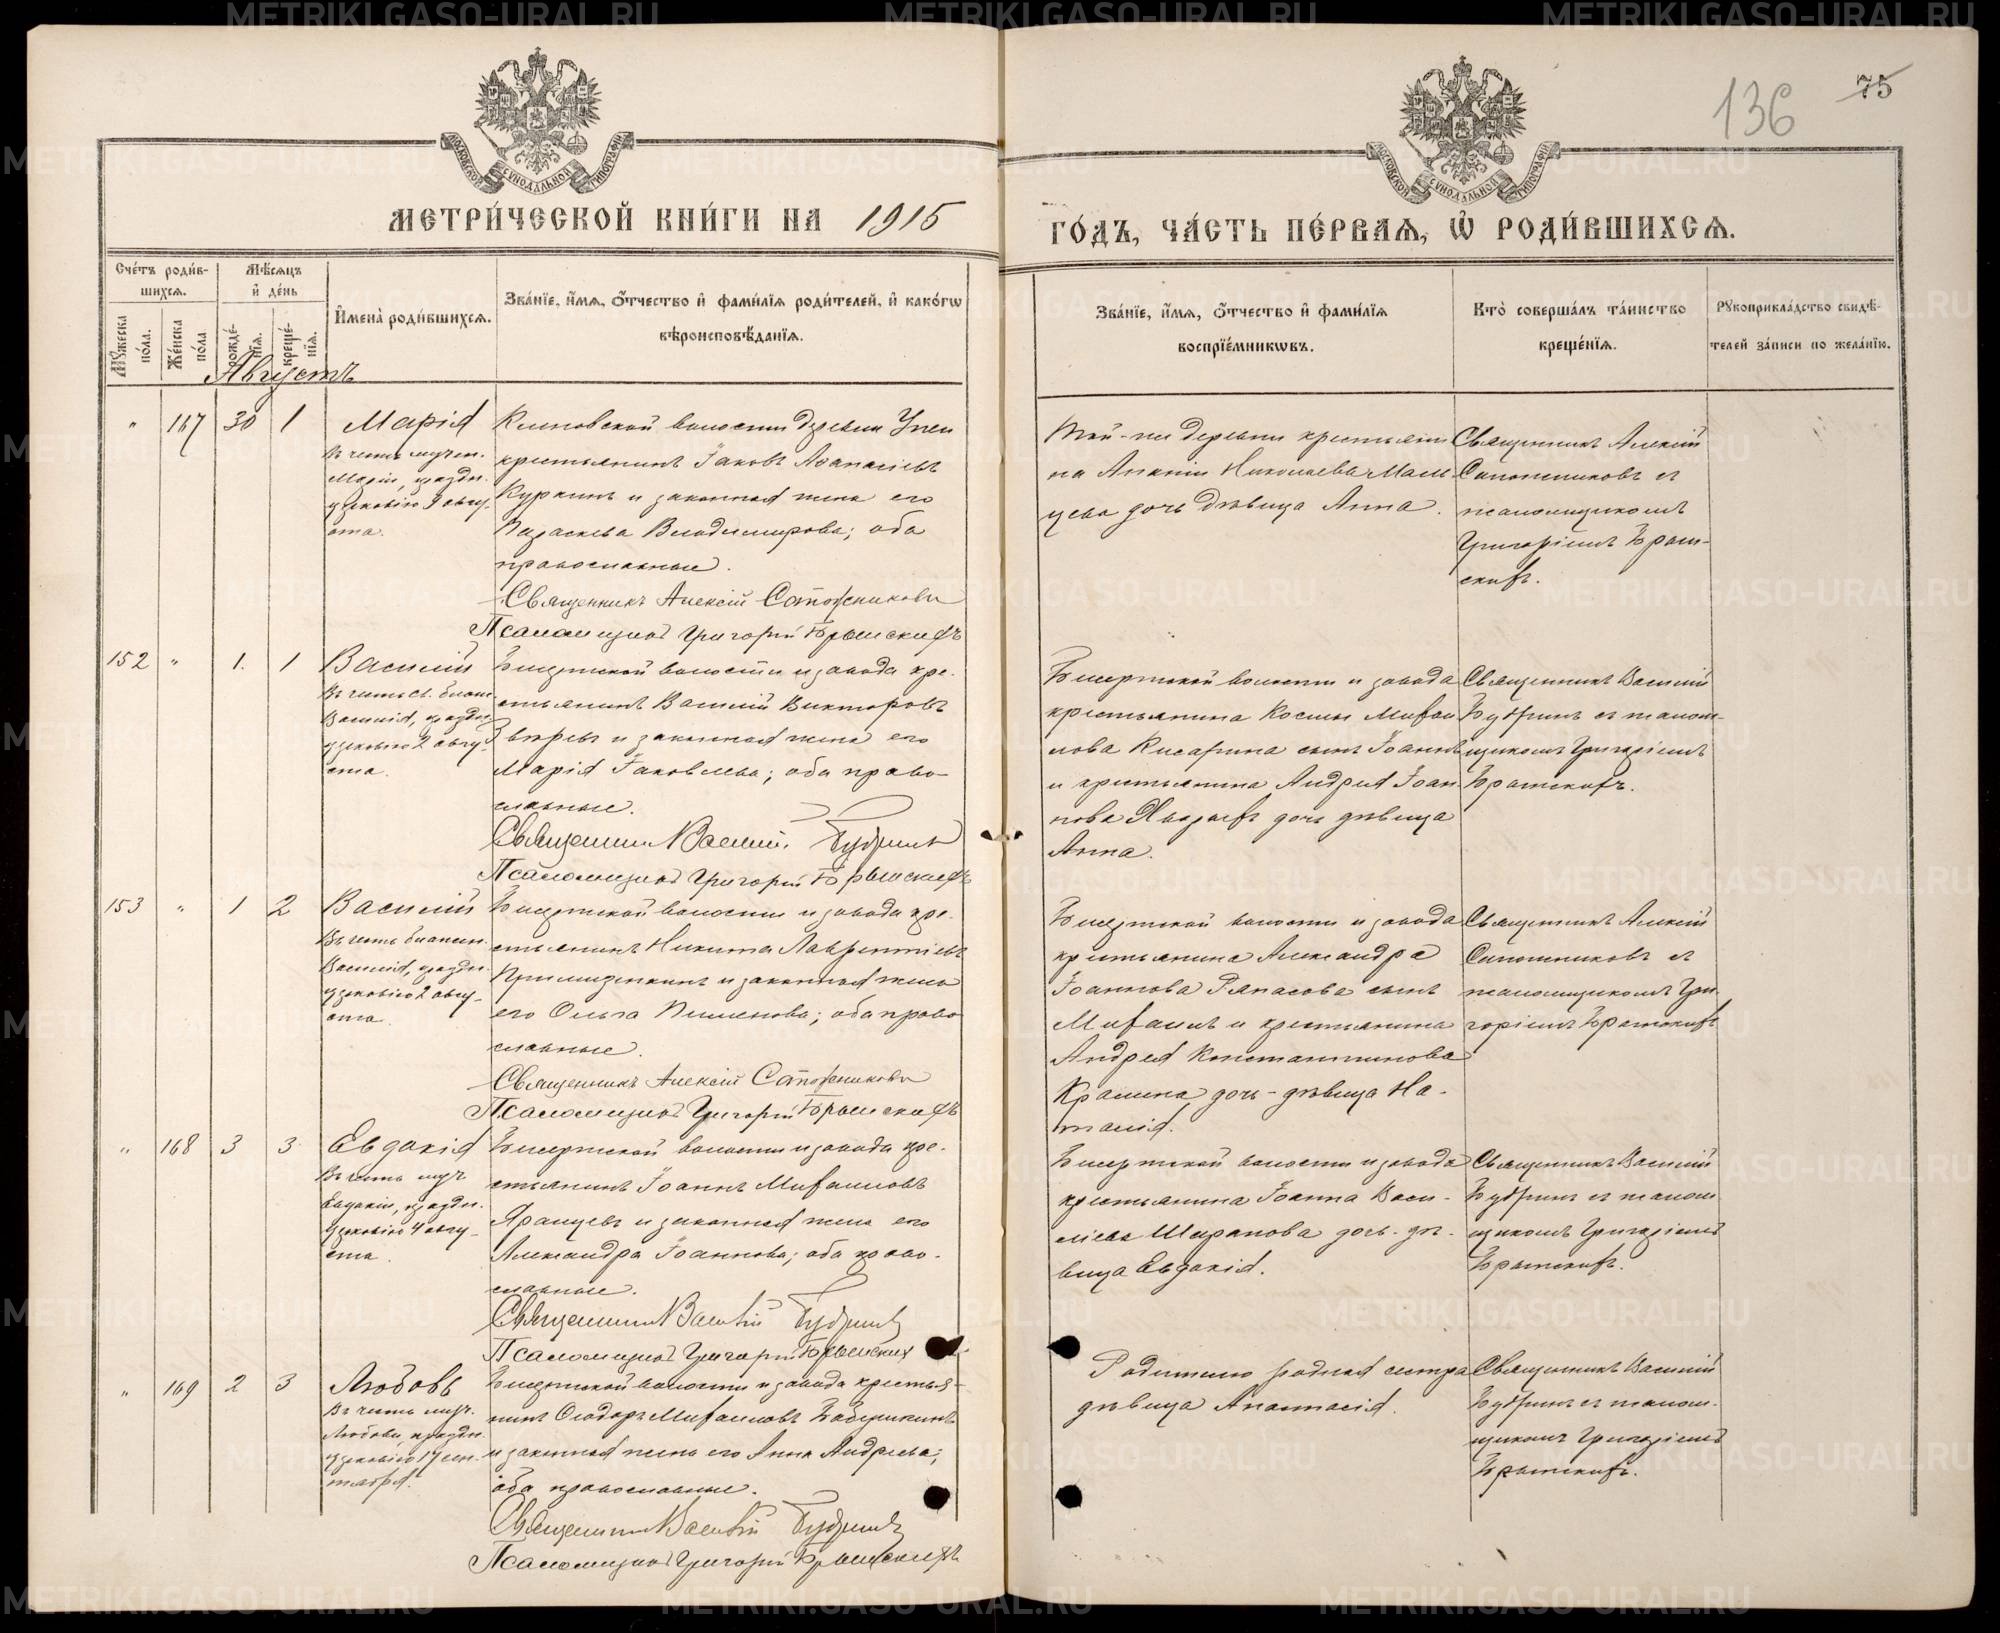 136 75
МЕТРИ́ЧЕСКОЙ КНИ́ГИ НА 1915
ГО́ДЪ, ЧА́СТЬ ПЕ́РВАЯ, Ѽ РОДИ́ВШИХСЯ.
Сче́тъ роди́в-
шихся.
Мѣсяцъ
и҆ де́нь
Мꙋжеска по́ла.
Же́нска по́ла
рожде́-
нїѧ.
креще́-
нїѧ.
И҆мена̀ роди́вшихся.
Зва́нїе, и҆́мѧ, ѻ҆́тчество и҆ фами́лїѧ роди́телей, и҆ како́гѡ
вѣроисповѣ́данїѧ.
Зва́нїе, и҆́мѧ, ѻ҆́тчество и҆ фами́лїѧ
воспрїе́мникѡвъ.
Кто̀ соверша́лъ та́инство
креще́нїѧ.
Рꙋкоприкла́дство свидѣ́-
телей за́писи по жела́нїю.
Августъ
" 167 30 1 Марія
Въ честь мучен.
Маріи, праздн.
уемой 9 авгу-
ста.
Кленовской волости деревни
крестьянинъ Іаковъ Аѳанасіевъ
Куркинъ и законная жена его
Параскева Владимирова; оба
православные.
Священникъ Алексій Сапожниковъ
Псаломщикъ Григорій
Той-же деревни крестьяни
на Николаева
дочь дѣвица Анна.
Священникъ Алексій
Сапожниковъ съ
псаломщикомъ
Григоріемъ
152 " 1. 1 Василій
Въ честь св. блаж.
Василія, праздн.
2 авгу-
ста.
Бисертской волости и завода кре-
стьянинъ Василій Викторовъ
Звѣревъ и законная жена его
Марія Іаковлева; оба право-
славные.
Священникъ Василій Будринъ
Псаломщикъ Григорій
Бисертской волости и завода
крестьянина Космы Михаи
лова Кисарина сынъ Іоаннъ
и крестьянина Андрея Іоан
нова дочь дѣвица
Анна.
Священникъ Василій
Будринъ съ псалом-
щикомъ Григоріемъ
153 " 1 2 Василій
Въ честь блажен.
Василія, праздн.
2 авгу-
ста.
Бисертской волости и завода кре-
стьянинъ Никита Лаврентіевъ
и законная жена
его Ольга Пименова; оба право
славные.
Священникъ Алексій Сапожниковъ
Псаломщикъ Григорій
Бисертской волости и завода
крестьянина Александра
Іоаннова сынъ
Михаилъ и крестьянина
Андрея Константинова
дочь-дѣвица На-
талія.
Священникъ Алексій
Сапожниковъ съ
псаломщикомъ Гри-
горіемъ
" 168 3 3 Евдокія
Въ честь муч.
Евдокіи, праздн.
4 авгу-
ста.
Бисертской волости и завода кре-
стьянинъ Іоаннъ Михаиловъ
Яранцевъ и законная жена его
Александра Іоаннова; оба право-
славные.
Священникъ Василій Будринъ
Псаломщикъ Григорій
Бисертской волости и завода
крестьянина Іоанна Васи-
ліева дочь-дѣ-
вица Евдокія.
Священникъ Василій
Будринъ съ псалом
щикомъ Григоріемъ
" 169 2 3 Любовь
Въ честь муч.
Любови, праздн.
17 сен-
тября.
Бисертской волости и завода крестья-
нинъ Ѳеодоръ Михаиловъ
и законная жена его Анна Андреева;
оба православные.
Священникъ Василій Будринъ
Псаломщикъ Григорій
Родителю родная сестра
дѣвица Анастасія.
Священникъ Василій
Будринъ съ псалом-
щикомъ Григоріемъ